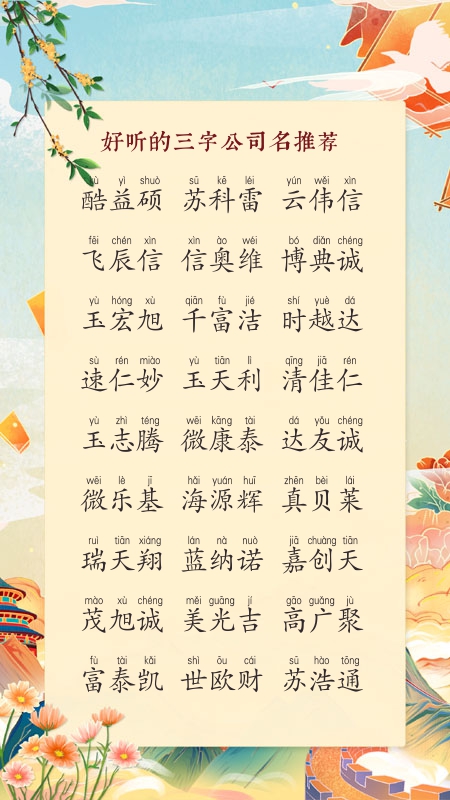 好听的三字公司名推荐
kù yì shuò sū kē léi yún wěi xìn
酷益硕 苏科雷 云伟信
fēi chén xìn xìn ào wéi bó diǎn chéng
飞辰信 信奥维 博典诚
yù hóng xù qiān fù jié shí yuè dá
玉宏旭 千富洁 时越达
sù rén miào yù tiān lì qīng jiā rén
速仁妙 玉天利 清佳仁
yù zhì téng wēi kāng tài dá yǒu chéng
玉志腾 微康泰 达友诚
wēi lè jī hǎi yuán huī zhēn bèi lái
微乐基 海源辉 真贝莱
ruì tiān xiáng lán nà nuò jiā chuàng tiān
瑞天翔 蓝纳诺 嘉创天
mào xù chéng měi guāng jí gāo guǎng jù
茂旭诚 美光吉 高广聚
fù tài kǎi shì ōu cái sū hào tōng
富泰凯 世欧财 苏浩通